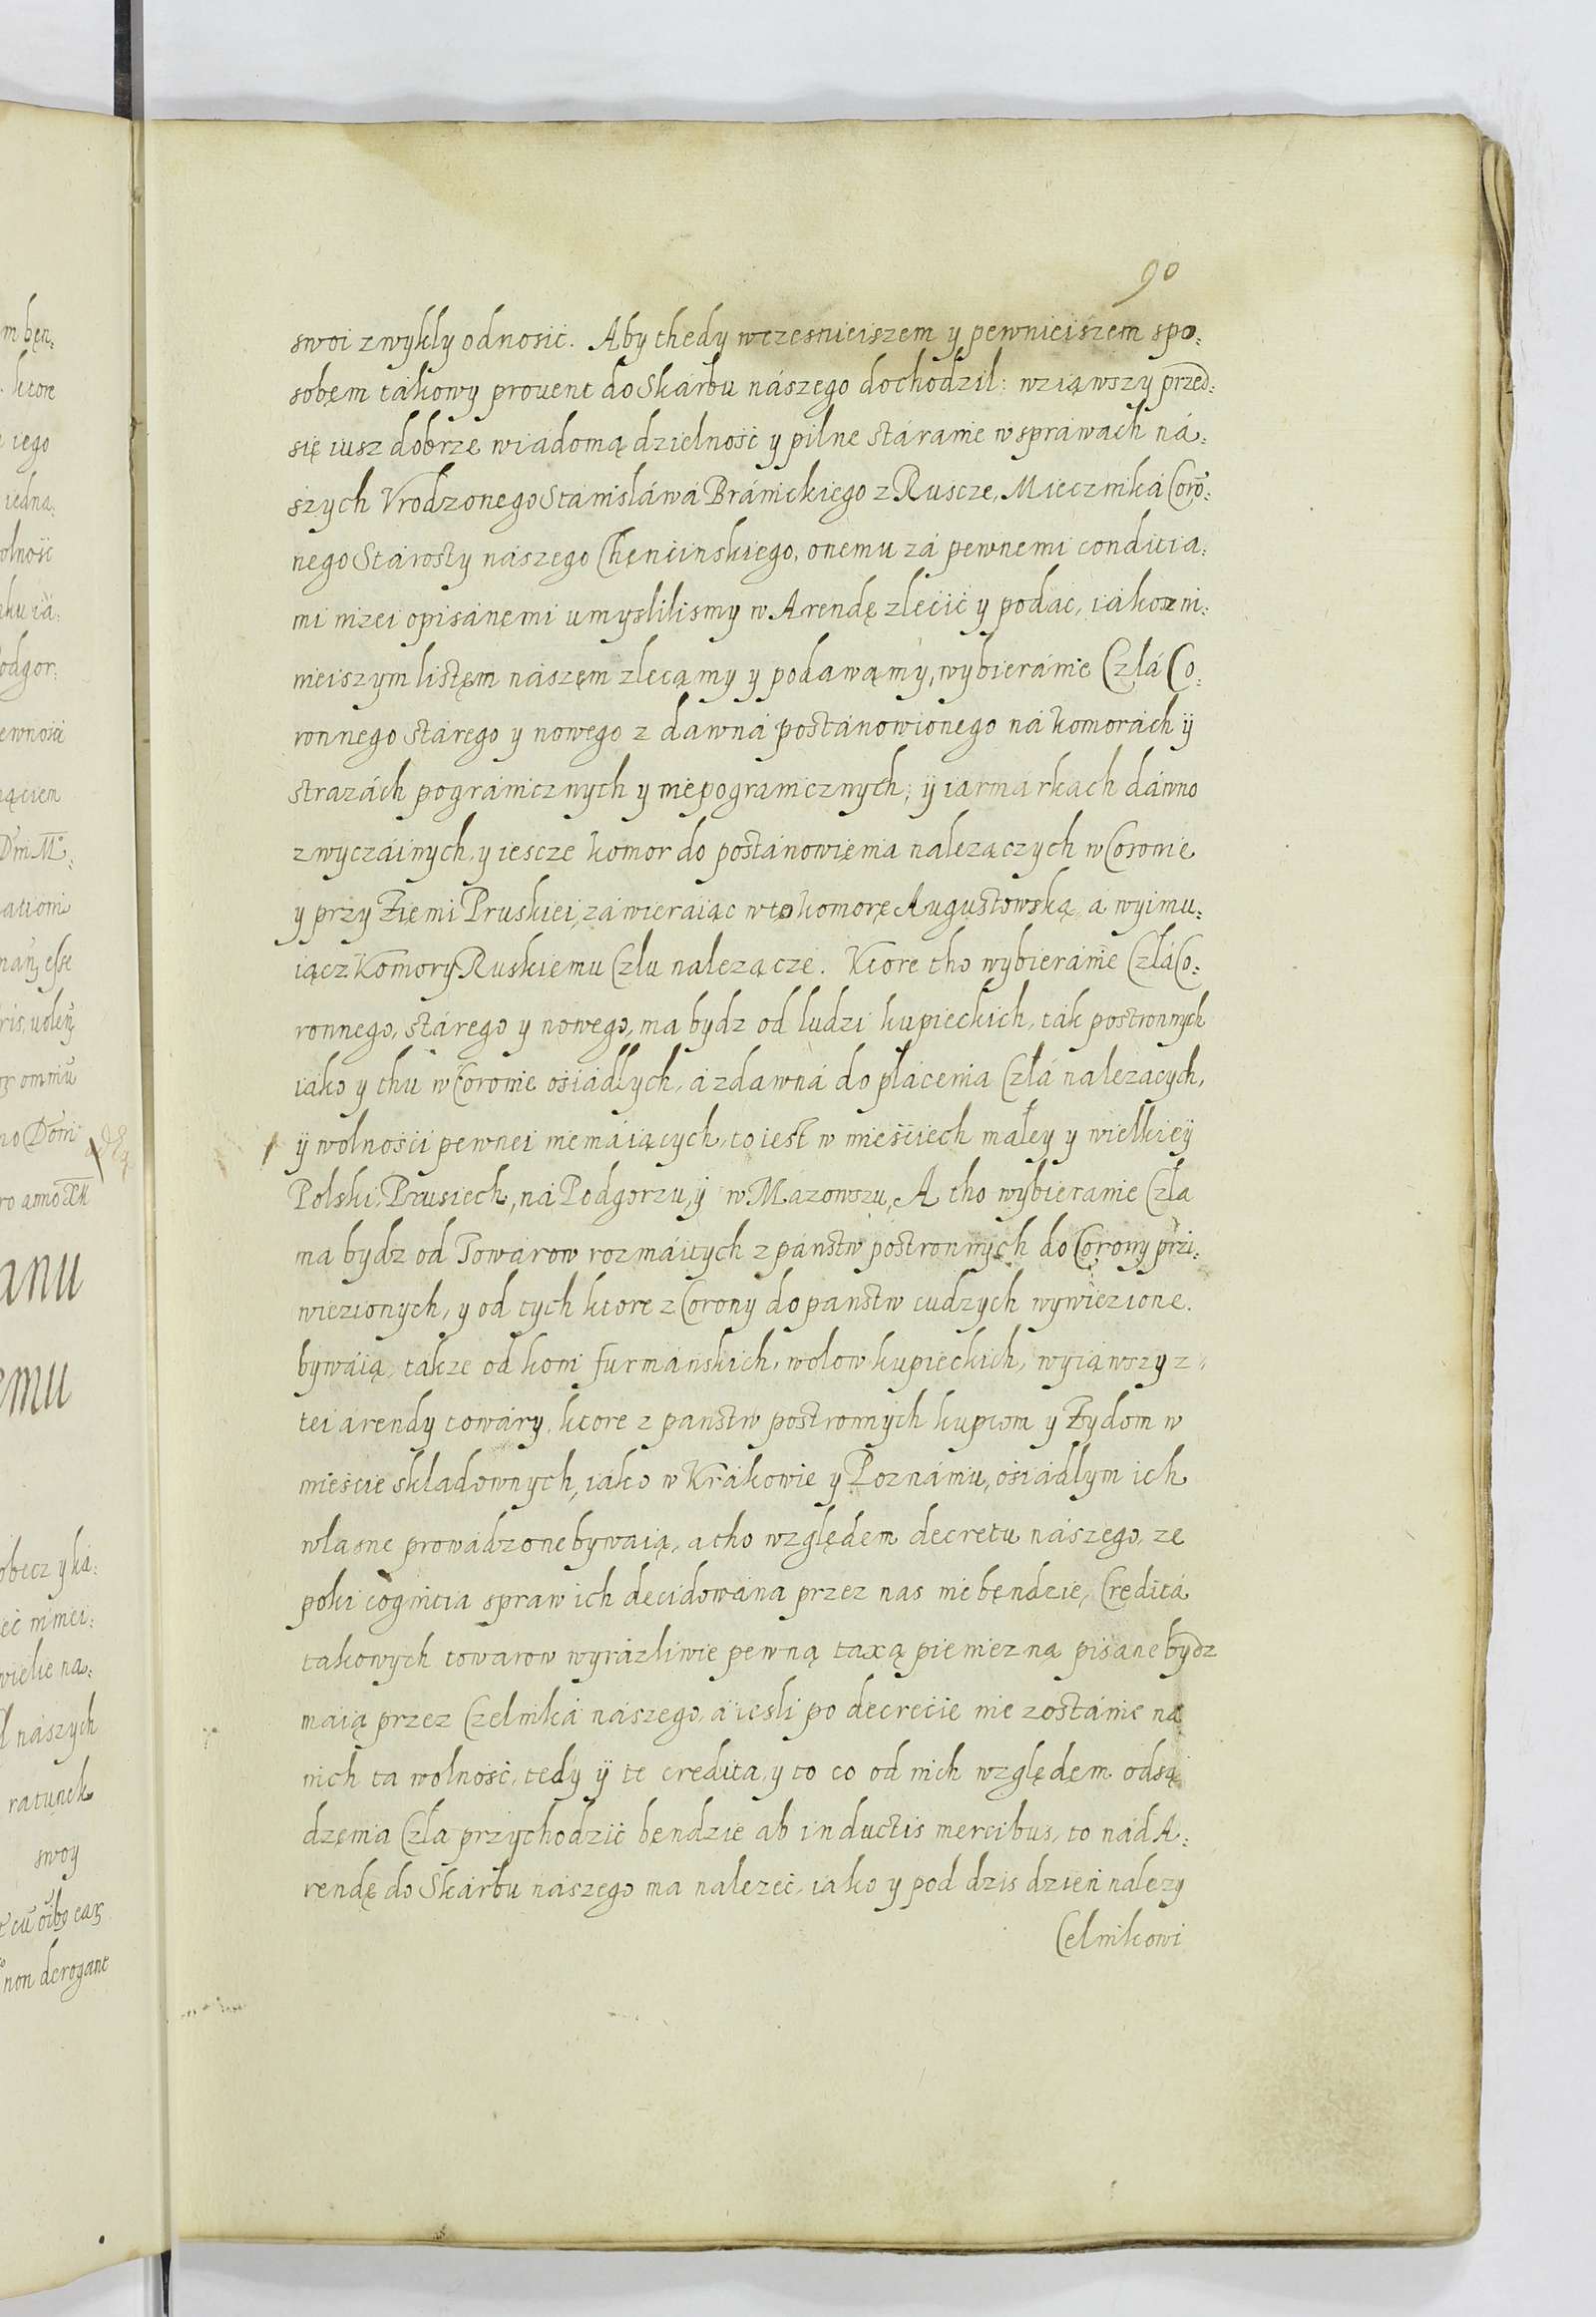 90
swoi zwykły odnosić. Aby thedy wczesnieiszem y pewnieiszem spo:
sobęm takowy prouent do Skarbu nászego dochodził: wziąwszy przed:
się iusz dobrze wiadomą dzielność y pilne stáranie w spráwach ná:
szych Vrodzonego Stanisláwá Bránickiego z Ruscze, Miecznika Coro:
nego Stárosty naszego Chęncinskiego, onemu zá pewnemi conditia:
mi nizei opisánemi umyslilismy w Arendę zlećić y podac, iakoz ni:
nieiszym listęm naszęm zlecąmy y podawąmy, wybieránie Czlá Co:
ronnego stárego y nowego z dawná postánowionego ná komorách ÿ
strazách pogránicznych y niepogranicznych, ÿ iarmárkach dáwno
zwyczáinych, y iescze komor do postánowięnia nalezączych w Coronie
y przy Zięmi Pruskiei, záwieraiąc w to komorę Augustowską, a wyimu:
iącz Komory Ruskięmu Czlu nalezącze. Ktore tho wybieránie Czlá Co:
ronnego, stárego y nowego, ma bydz od ludzi kupieckich, tak postronnych
iako y thu w Coronie ośiádłych, á zdawná do płácenia Człá nalezacych,
ÿ wolnośći pewnei niemáiących, to iest w mieśćiech małey y wielkieÿ
Polski, Prusiech, ná Podgorzu, ÿ w Mazowszu, A tho wybieranie Czła
ma bydz od Towárow rozmáitych z pánstw postronnych do Corony przi:
wiezionych, y od tych ktore z Corony do panstw cudzych wywiezione.
bywáią, takze od koni furmánskich, wołow kupieckich, wyiąwszy z
tei arendy towáry, ktore z panstw postronnych kupcom y Zydom w
mieśćie składownych, iako w Krákowie y Poznániu, ośiádłym ich
własne prowádzone bywaią, a tho względem decretu nászego, ze
poki cognitia spraw ich decidowána przez nas nie będzie, Creditá
takowych towarow wyráźliwie pewną taxą pieniezną pisane bydz
maią przez Czelniká nászego, á iesli po decrećie nie zostánie na
nich ta wolność, tedy ÿ te credita, y to co od nich względęm odsą
dzęnia Czła przychodzić bendzie ab inductis mercibus, to nád A:
rendę do Skárbu naszego ma nalezeć, iako y pod dzis dzień nalezy
Celnikowi